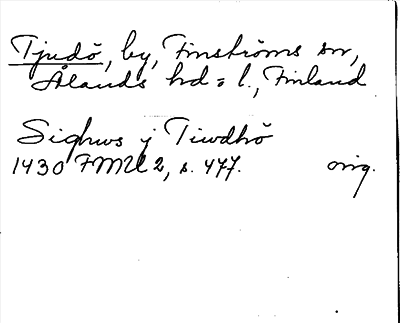 Tjudö, by, Finströms sn,
Ålands hd o l., Finland
Sighws j Tiwdhö
1430 FMU 2, s. 477. orig.